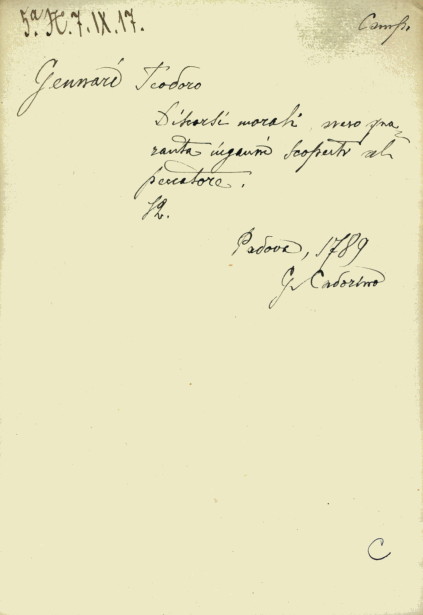 5ª. H. 7. IX. 17.
Camp.
Gennari Teodoro
Discorsi morali, ovvero qua-
ranta inganni scoperti al
peccatore.
12.
Padova, 1789
G. Cadorino
C